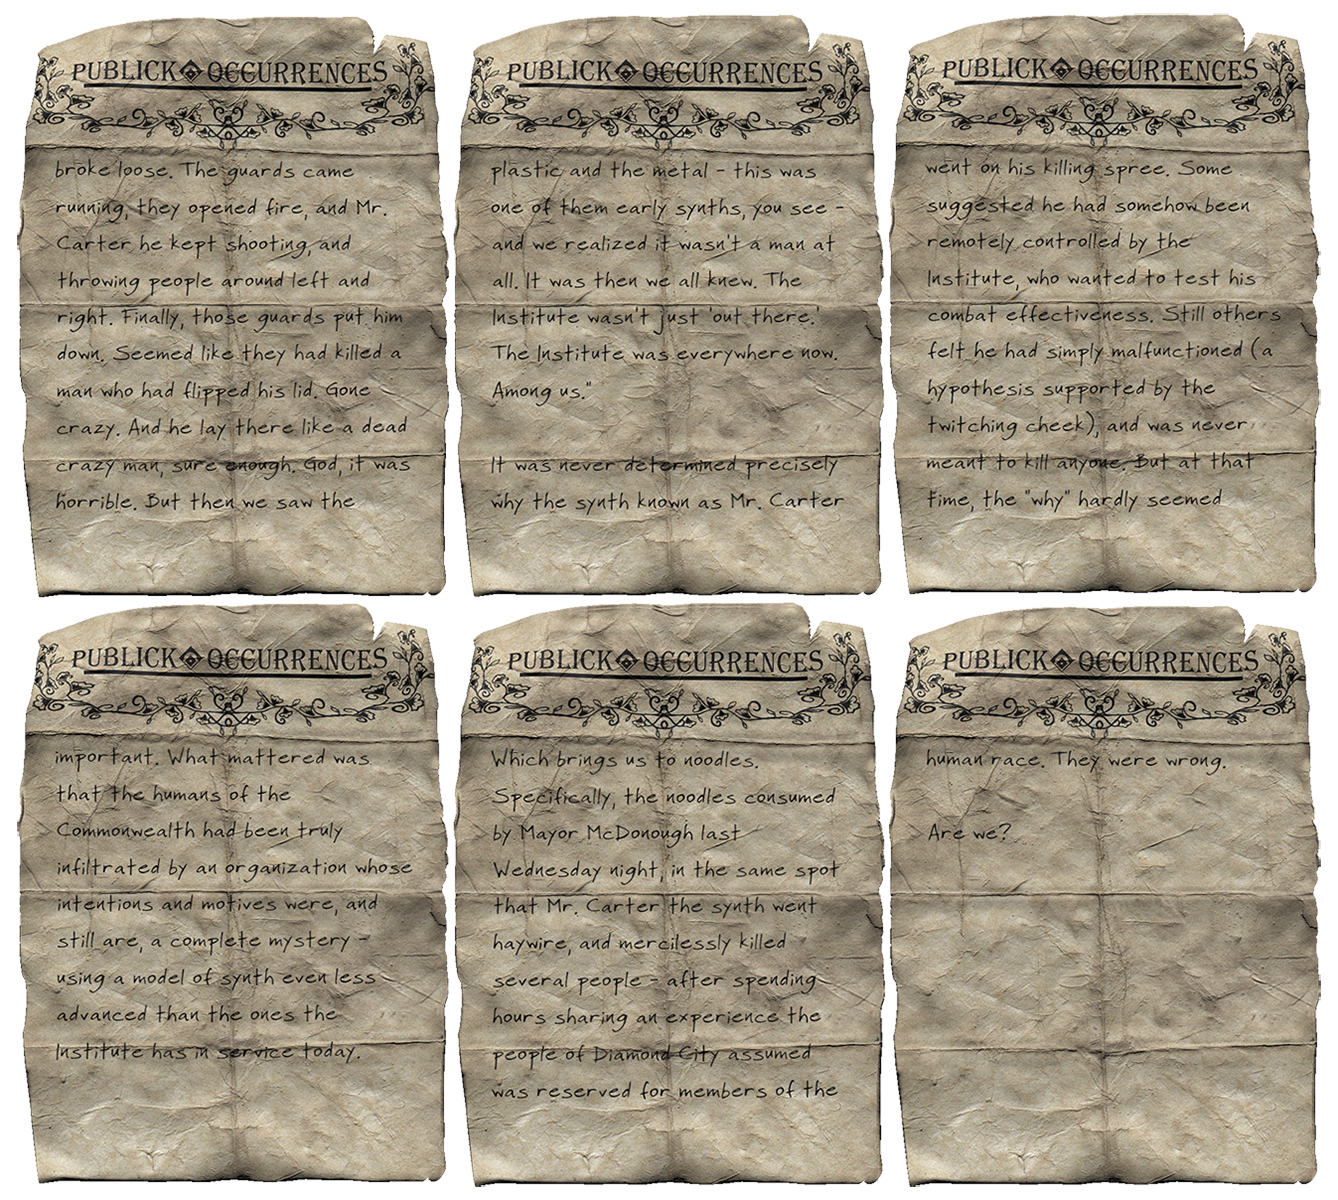 PUBLICK OCCURRENCES
broke loose. The guards came
running, they opened fire, and Mr.
Carter he kept shooting, and
throwing people around left and
right. Finally, those guards put him
down. Seemed like they had killed a
man who had flipped his lid. Gone
crazy. And he lay there like a dead
crazy man, sure enough. God, it was
horrible. But then we saw the
PUBLICK OCCURRENCES
plastic and the metal - this was
one of them early synths, you see -
and we realized it wasn't a man at
all. It was then we all knew. The
Institute wasn't just 'out there.'
The Institute was everywhere now.
Among us."
It was never determined precisely
why the synth known as Mr. Carter
PUBLICK OCCURRENCES
went on his killing spree. Some
suggested he had somehow been
remotely controlled by the
Institute, who wanted to test his
combat effectiveness. Still others
felt he had simply malfunctioned (a
hypothesis supported by the
twitching cheek), and was never
meant to kill anyone. But at that
time, the "why" hardly seemed
PUBLICK OCCURRENCES
important. What mattered was
that the humans of the
Commonwealth had been truly
infiltrated by an organization whose
intentions and motives were, and
still are, a complete mystery -
using a model of synth even less
advanced than the ones the
Institute has in service today.
PUBLICK OCCURRENCES
Which brings us to noodles.
Specifically, the noodles consumed
by Mayor McDonough last
Wednesday night, in the same spot
that Mr. Carter the synth went
haywire, and mercilessly killed
several people - after spending
hours sharing an experience the
people of Diamond City assumed
was reserved for members of the
PUBLICK OCCURRENCES
human race. They were wrong.
Are we?